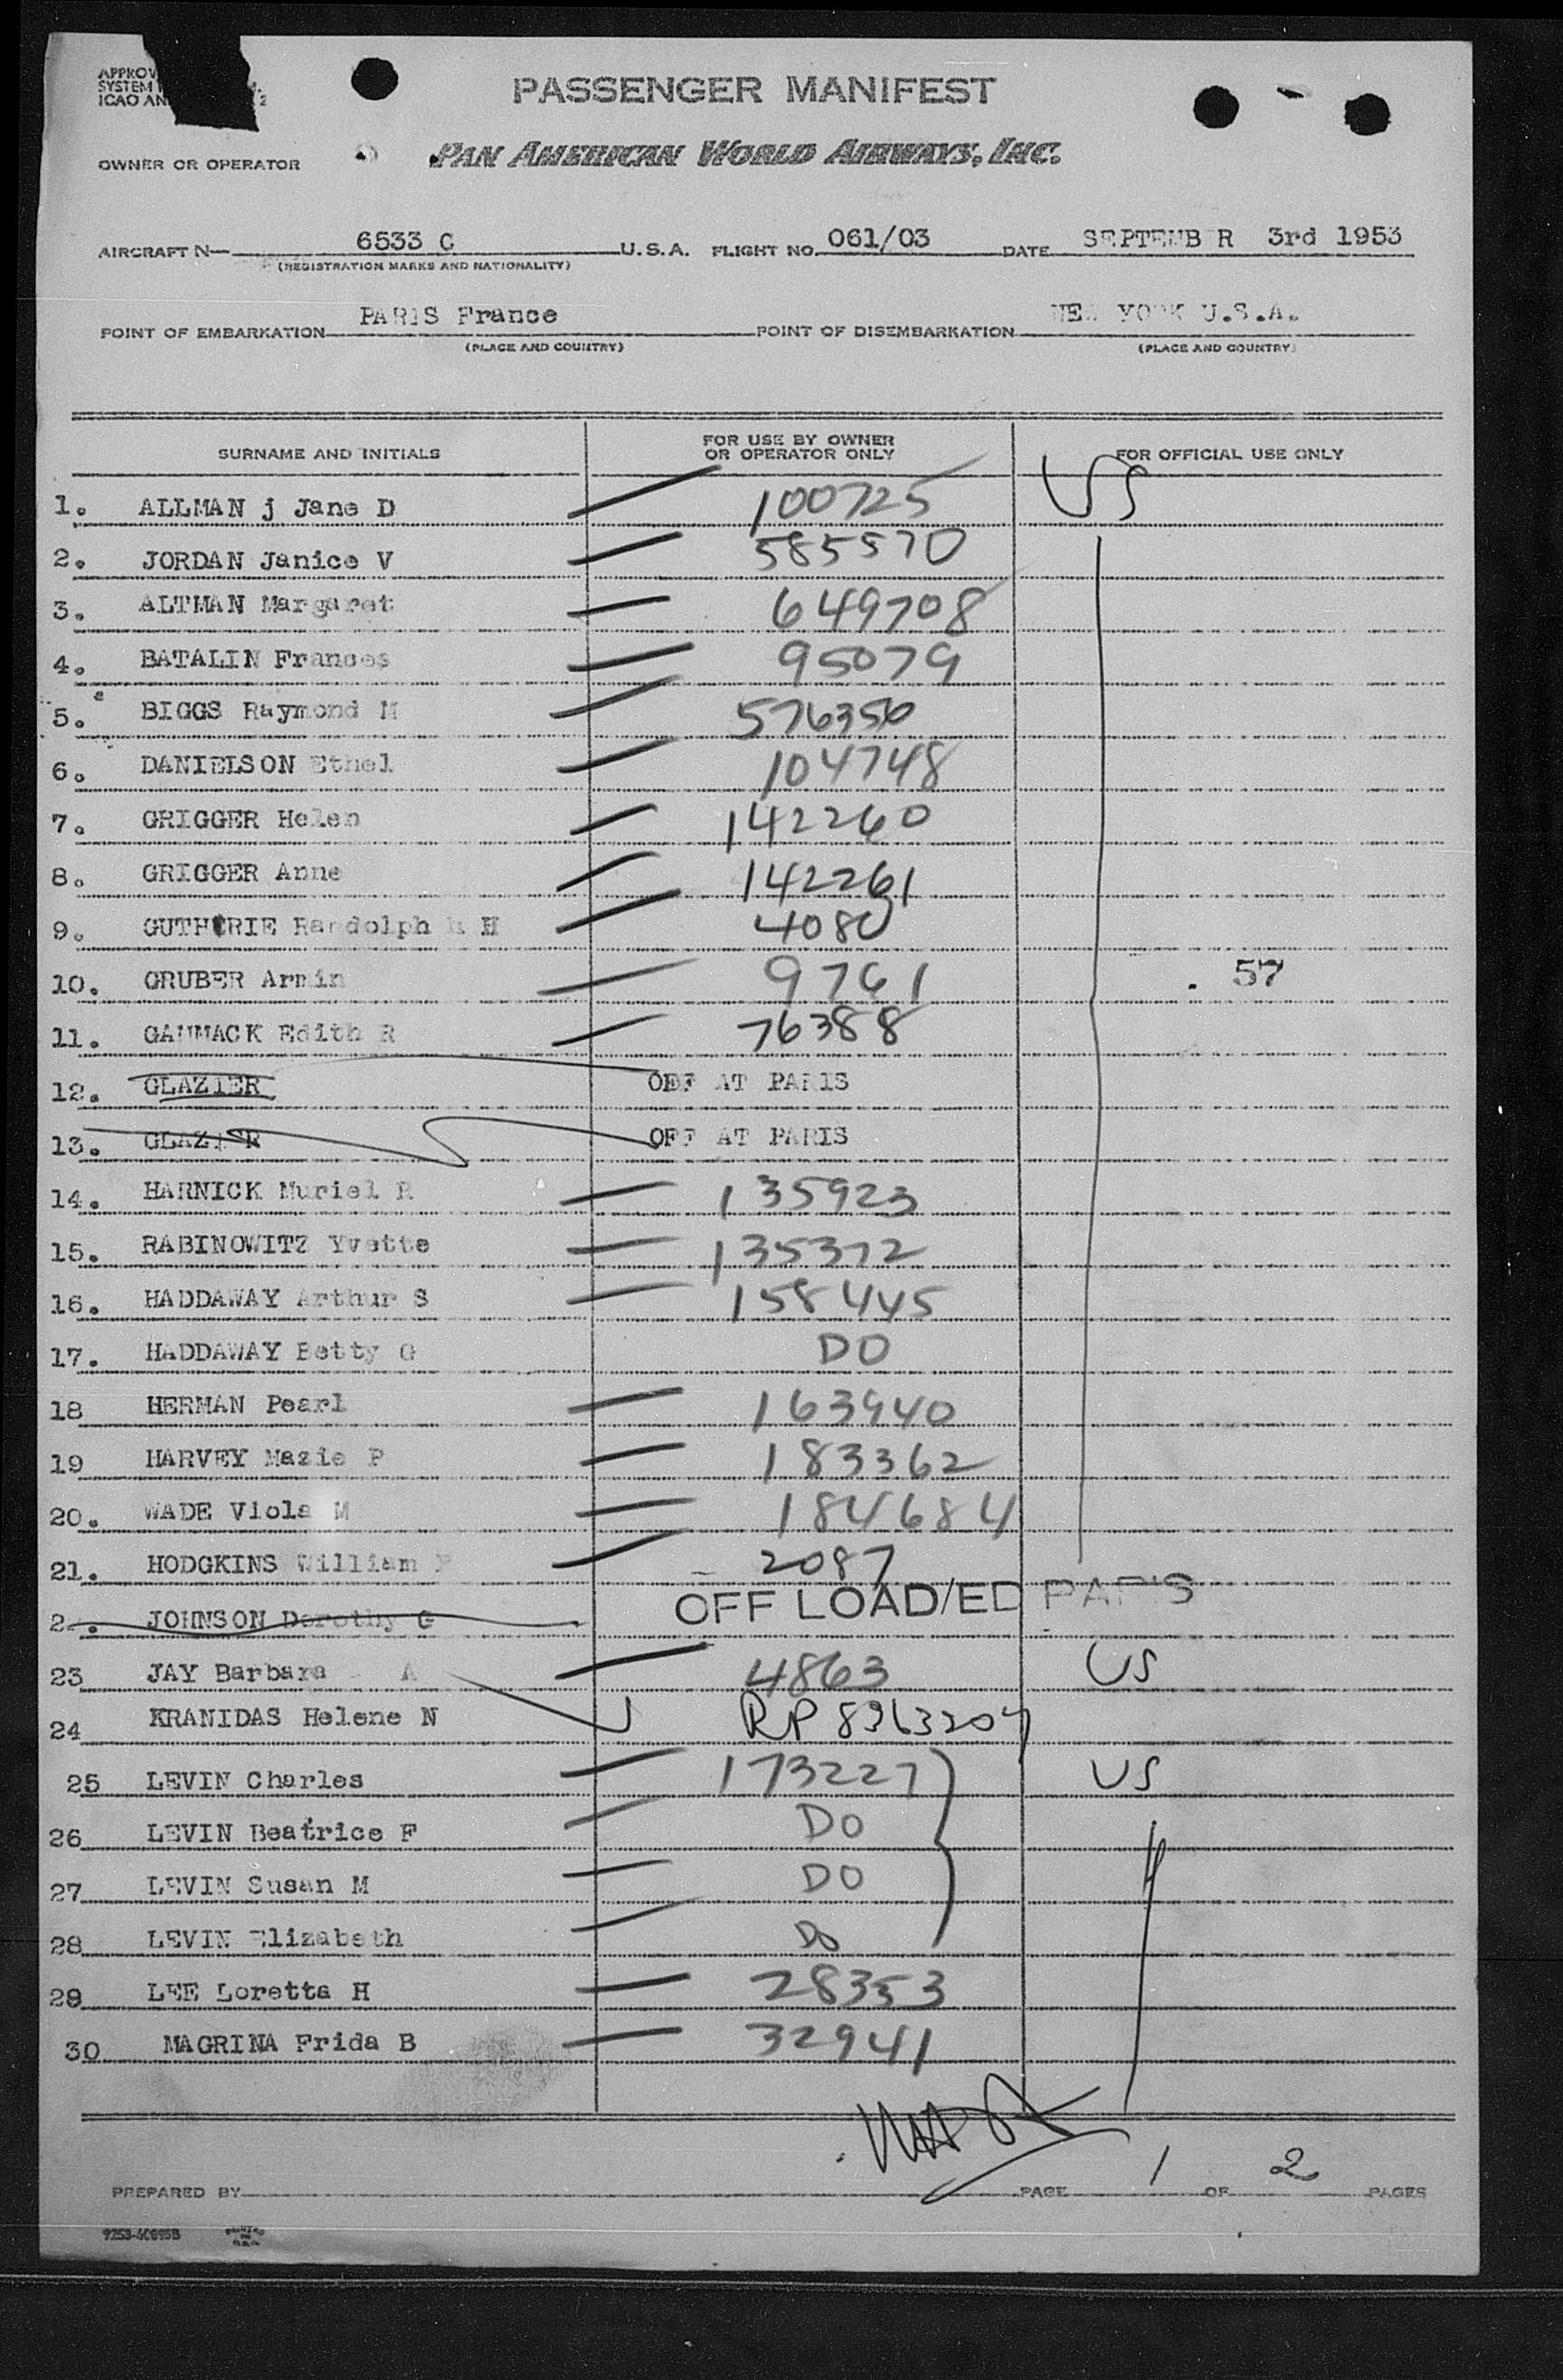 PASSENGER MANIFEST
OWNER OR OPERATOR PAN AMERICAN WORLD AIRWAYS, INC.
AIRCRAFT N— 6533 C U.S.A. FLIGHT NO. 061/03 DATE SEPTEMB R 3rd 1953
(REGISTRATION MARKS AND NATIONALITY)
POINT OF EMBARKATION PARIS France POINT OF DISEMBARKATION NEW YORK U.S.A.
(PLACE AND COUNTRY) (PLACE AND COUNTRY)
SURNAME AND INITIALS FOR USE BY OWNER OR OPERATOR ONLY FOR OFFICIAL USE ONLY
1. ALLMAN j Jane D 100725 US
2. JORDAN Janice V 585570
3. ALTMAN Margaret 649708
4. BATALIN Frances 95079
5. BIGGS Raymond M 576356
6. DANIELSON Ethel 104748
7. GRIGGER Helen 142260
8. GRIGGER Anne 142261
9. GUTHRIE Randolph H 4080
10. GRUBER Armin 9761 57
11. GAMMACK Edith R 76388
12. GLAZIER OFF AT PARIS
13. GLAZIER OFF AT PARIS
14. HARNICK Muriel R 135923
15. RABINOWITZ Yvette 135372
16. HADDAWAY Arthur S 158445
17. HADDAWAY Betty G DO
18 HERMAN Pearl 163940
19 HARVEY Mazie P 183362
20. WADE Viola M 184684
21. HODGKINS William 2087
2 . JOHNSON Dorothy G OFF LOAD/ED PARIS
23 JAY Barbara A 4863 US
24 KRANIDAS Helene N RP 8963204
25 LEVIN Charles 173227 US
26 LEVIN Beatrice F DO
27 LEVIN Susan M DO
28 LEVIN Elizabeth DO
29 LEE Loretta H 28353
30 MAGRINA Frida B 32941
PREPARED BY PAGE 1 OF 2 PAGES